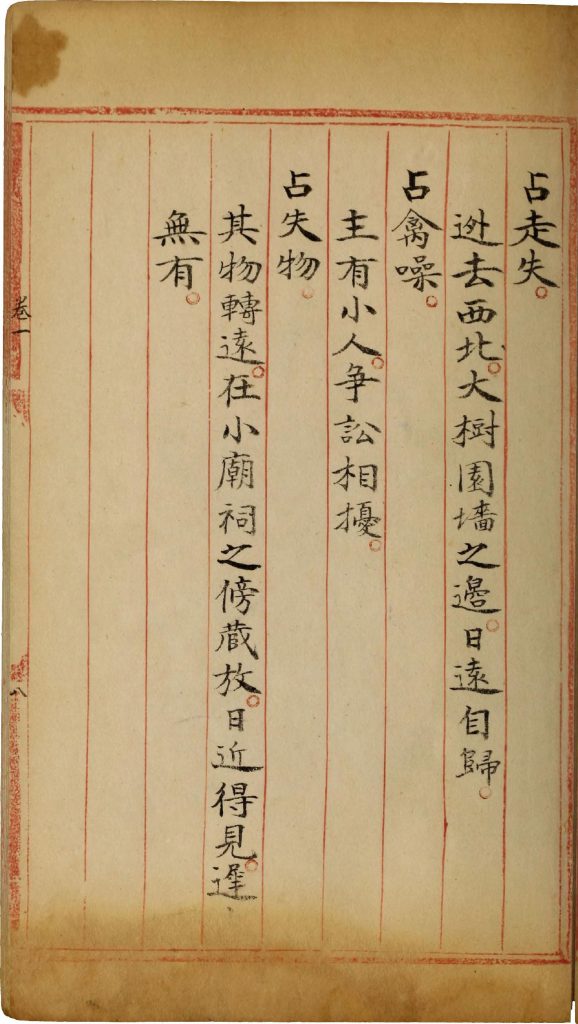 占走失。
迯去西北。大樹園墻之邊。日遠自歸。
占禽噪。
主有小人。爭訟相擾。
占失物。
其物轉遠。在小廟祠之傍藏放。日近得見。遲
無有。
卷一
八